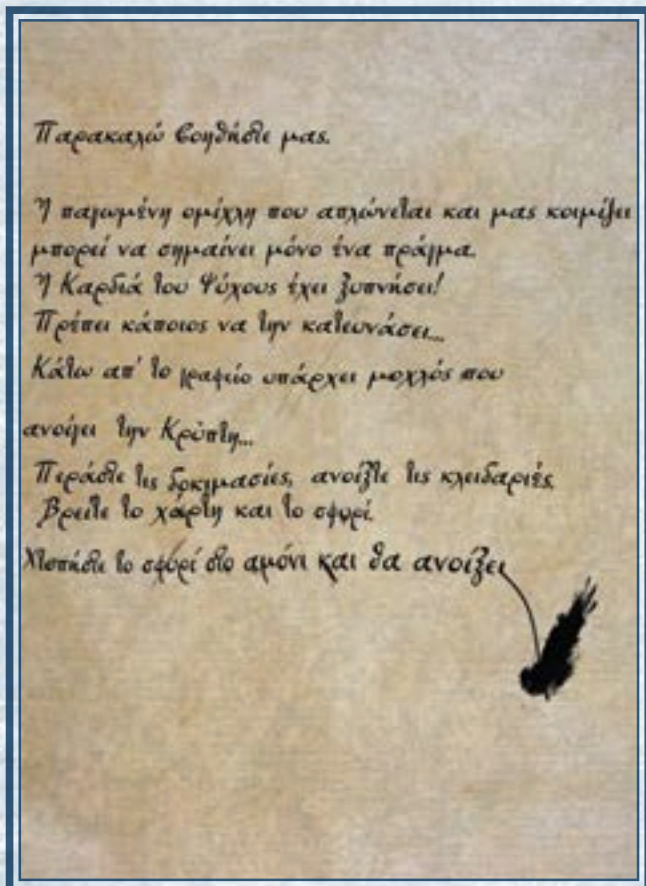 Παρακαλώ βοηθήστε μας.
Η παγωμένη ομίχλη που απλώνεται και μας κοιμίζει
μπορεί να σημαίνει μόνο ένα πράγμα.
Η Καρδιά του Ψύχους έχει ξυπνήσει!
Πρέπει κάποιος να την κατευνάσει...
Κάτω απ' το γραφείο υπάρχει μοχλός που
ανοίγει την Κρύπτη...
Περάστε τις δοκιμασίες, ανοίξτε τις κλειδαριές.
Βρείτε το χάρτη και το σφυρί.
Χτυπήστε το σφυρί στο αμόνι και θα ανοίξει